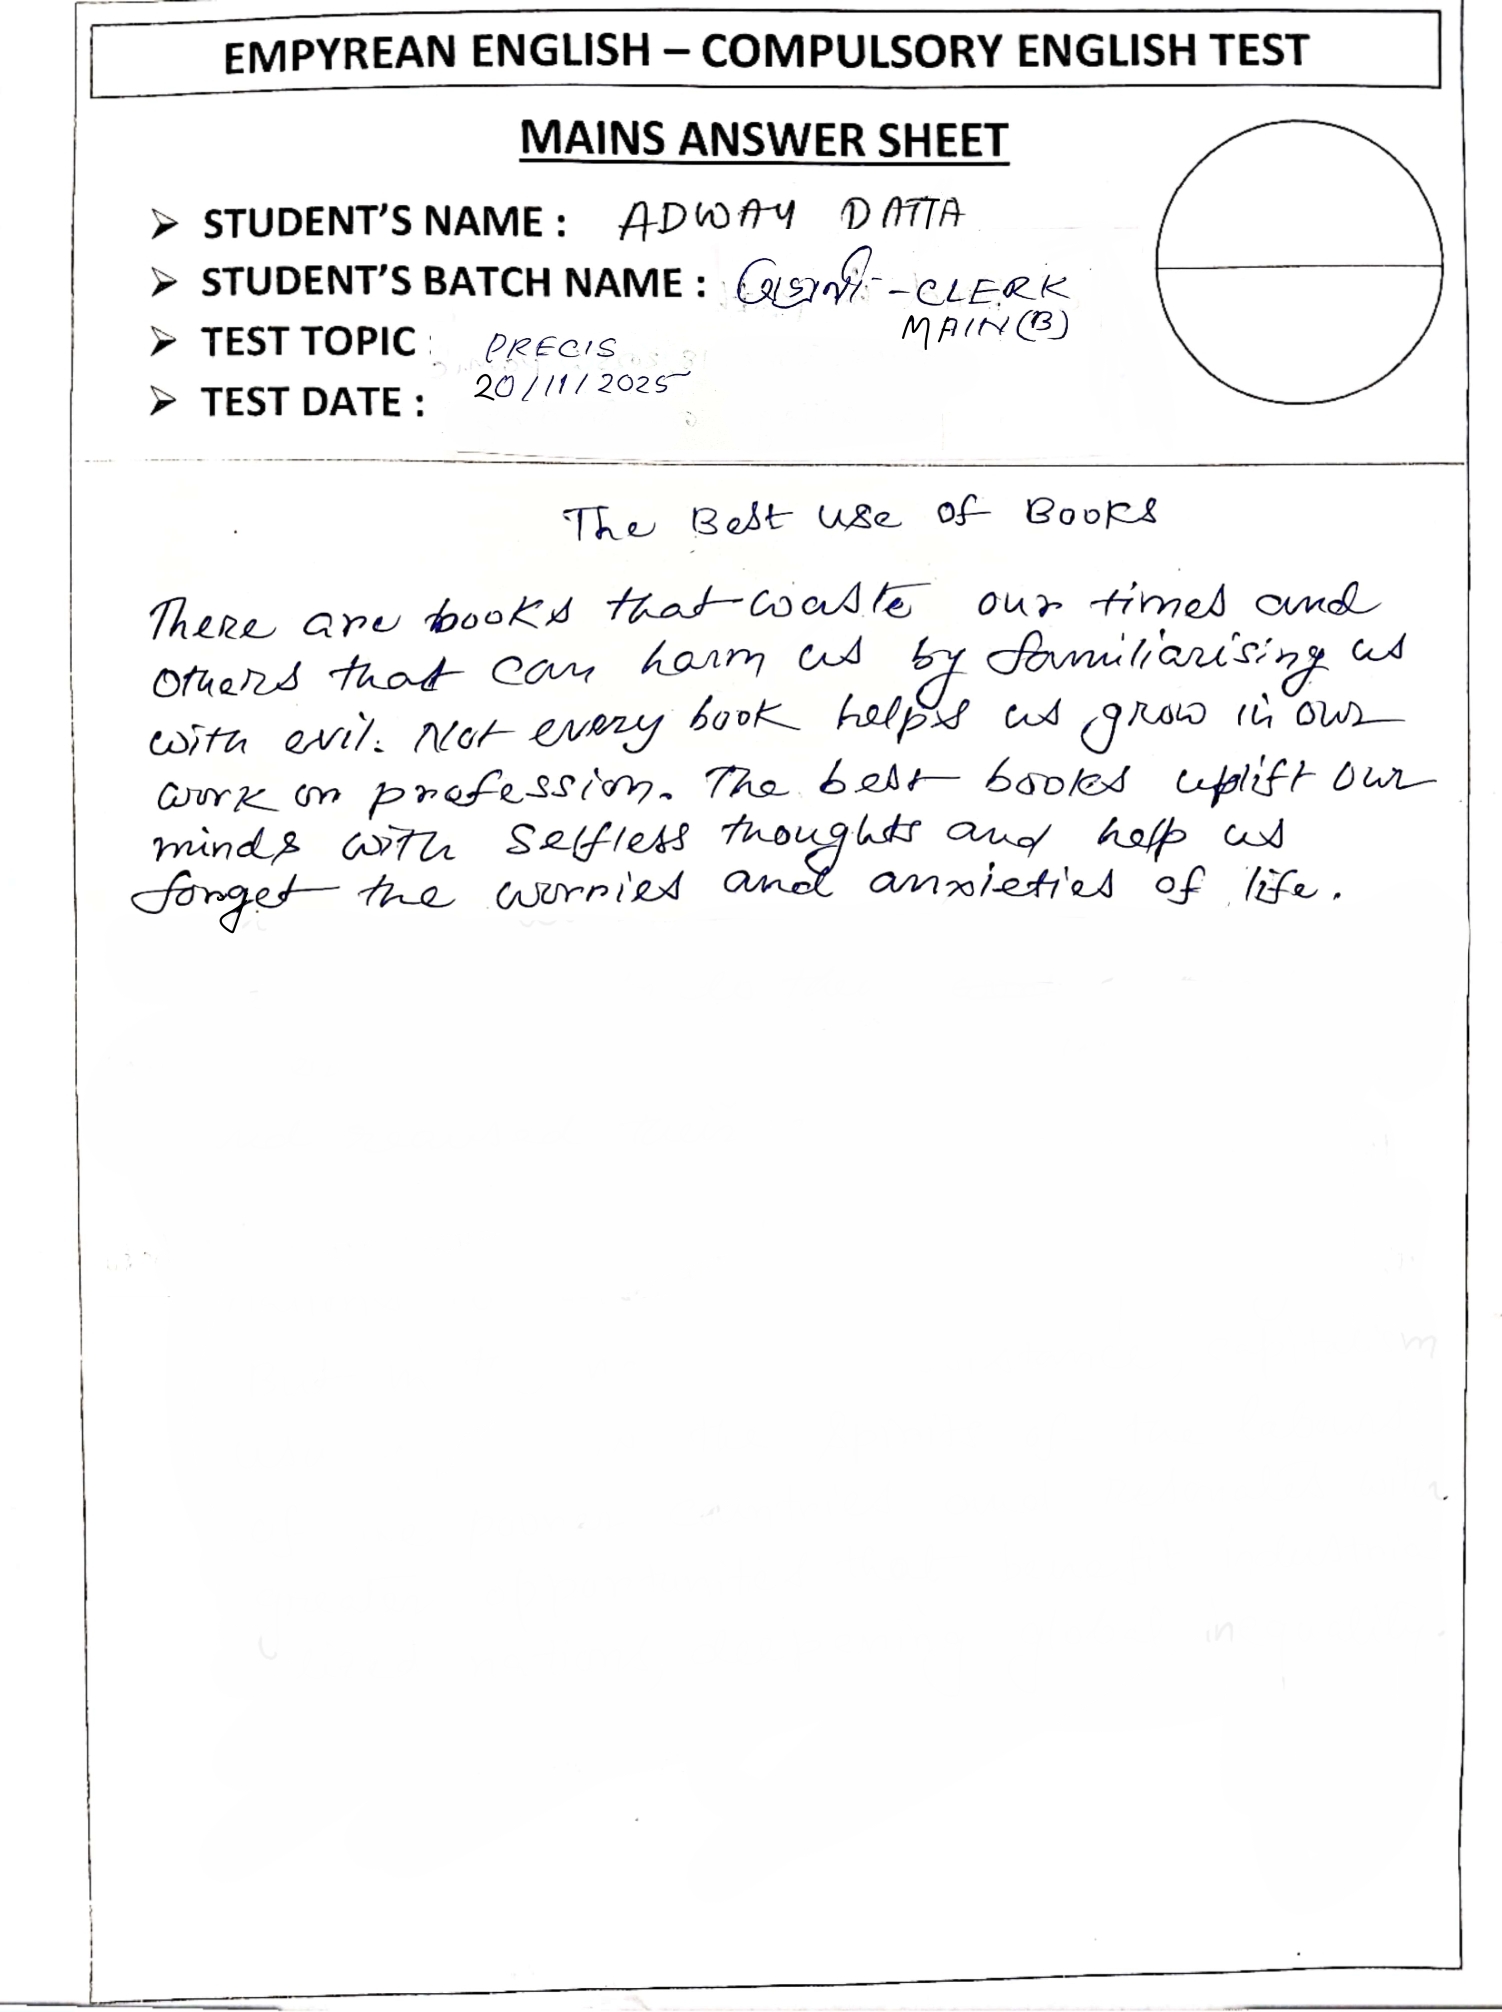 EMPYREAN ENGLISH – COMPULSORY ENGLISH TEST
MAINS ANSWER SHEET
➢ STUDENT'S NAME : ADWAY DATTA
➢ STUDENT'S BATCH NAME : - CLERK
MAIN (B)
➢ TEST TOPIC : PRECIS
➢ TEST DATE : 20/11/2025
The Best use of Books
There are books that waste our times and
others that can harm us by familiarising us
with evil. Not every book helps us grow in our
work or profession. The best books uplift our
minds with selfless thoughts and help us
forget the worries and anxieties of life.